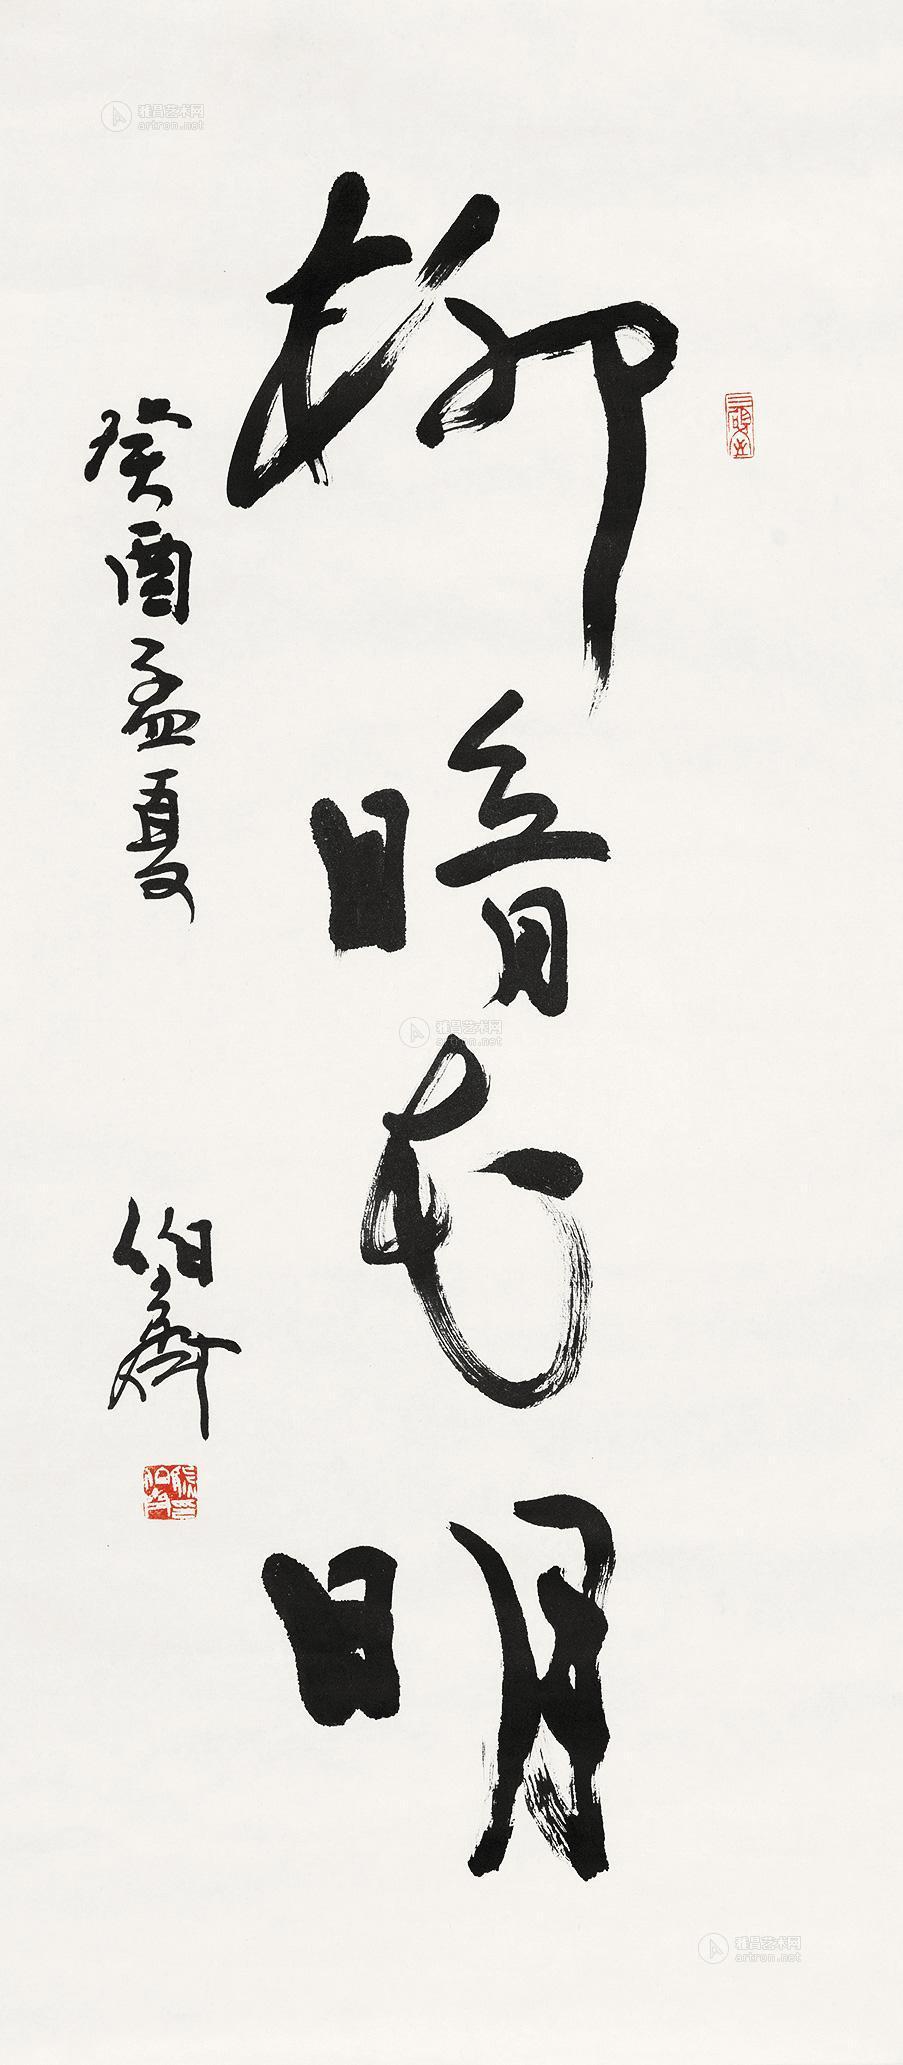 柳暗花明
癸酉孟夏
伯齊
雅昌艺术网
artron.net
雅昌艺术网
artron.net
雅昌艺术网
artron.net